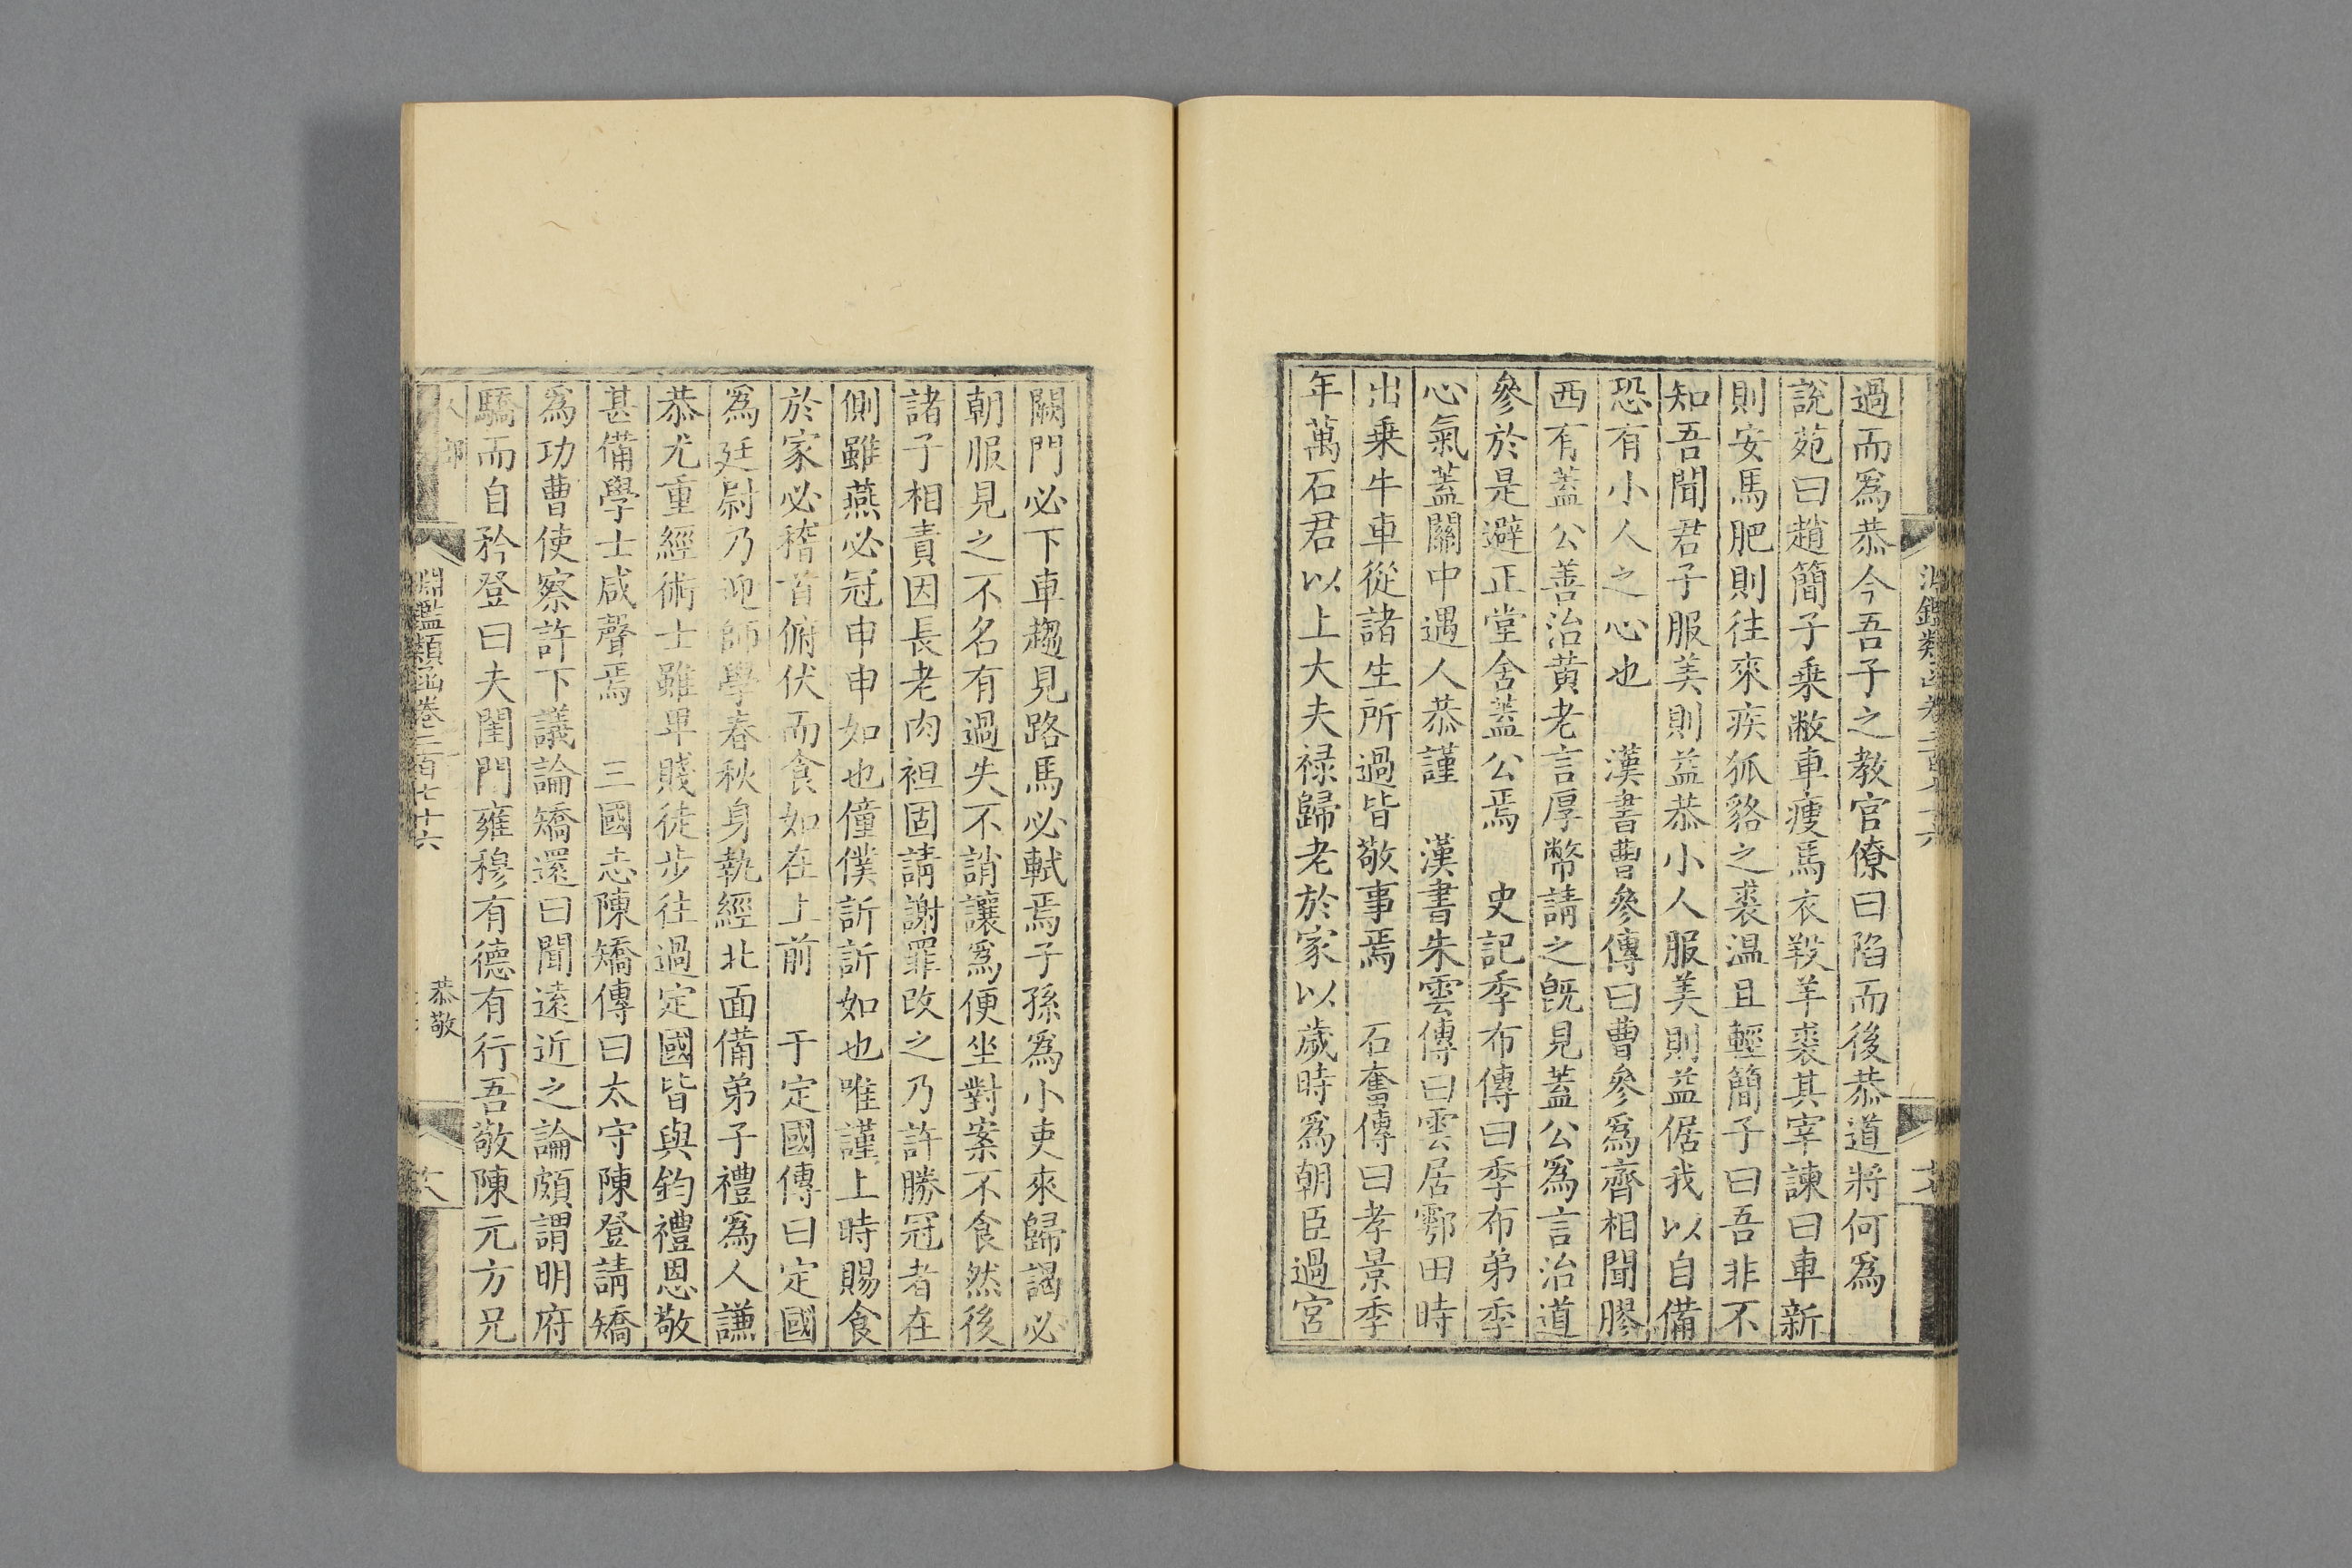 過而爲恭今吾子之教官僚曰陷而後恭道將何爲
說苑曰趙簡子乗敝車瘦馬衣羖羊裘其宰諫曰車新
則安馬肥則往來疾狐貉之裘温且輕簡子曰吾非不
知吾聞君子服美則益恭小人服美則益倨我以自備
恐有小人之心也　漢書曹參傳曰曹參爲齊相聞膠
西有蓋公善治黄老言厚幣請之旣見蓋公爲言治道
參於是避正堂舍蓋公焉　史記季布傳曰季布弟季
心氣蓋關中遇人恭謹　漢書朱雲傳曰雲居鄠田時
出乗牛車從諸生所過皆敬事焉　石奮傳曰孝景季
年萬石君以上大夫禄歸老於家以歲時爲朝臣過宮
闕門必下車趨見路馬必軾焉子孫爲小吏來歸謁必
朝服見之不名有過失不誚讓爲便坐對案不食然後
諸子相責因長老肉袒固請謝罪改之乃許勝冠者在
側雖燕必冠申申如也僮僕訢訢如也唯謹上時賜食
於家必稽首俯伏而食如在上前　于定國傳曰定國
爲廷尉乃迎師學春秋身執經北面備弟子禮爲人謙
恭尤重經術士雖卑賤徒步往過定國皆與鈞禮恩敬
甚備學士咸聲焉　三國志陳矯傳曰太守陳登請矯
爲功曹使察許下議論矯還曰聞遠近之論頗謂明府
驕而自矜登曰夫閨門雍穆有德有行吾敬陳元方兄
淵鑑類函卷二百七十六
恭敬